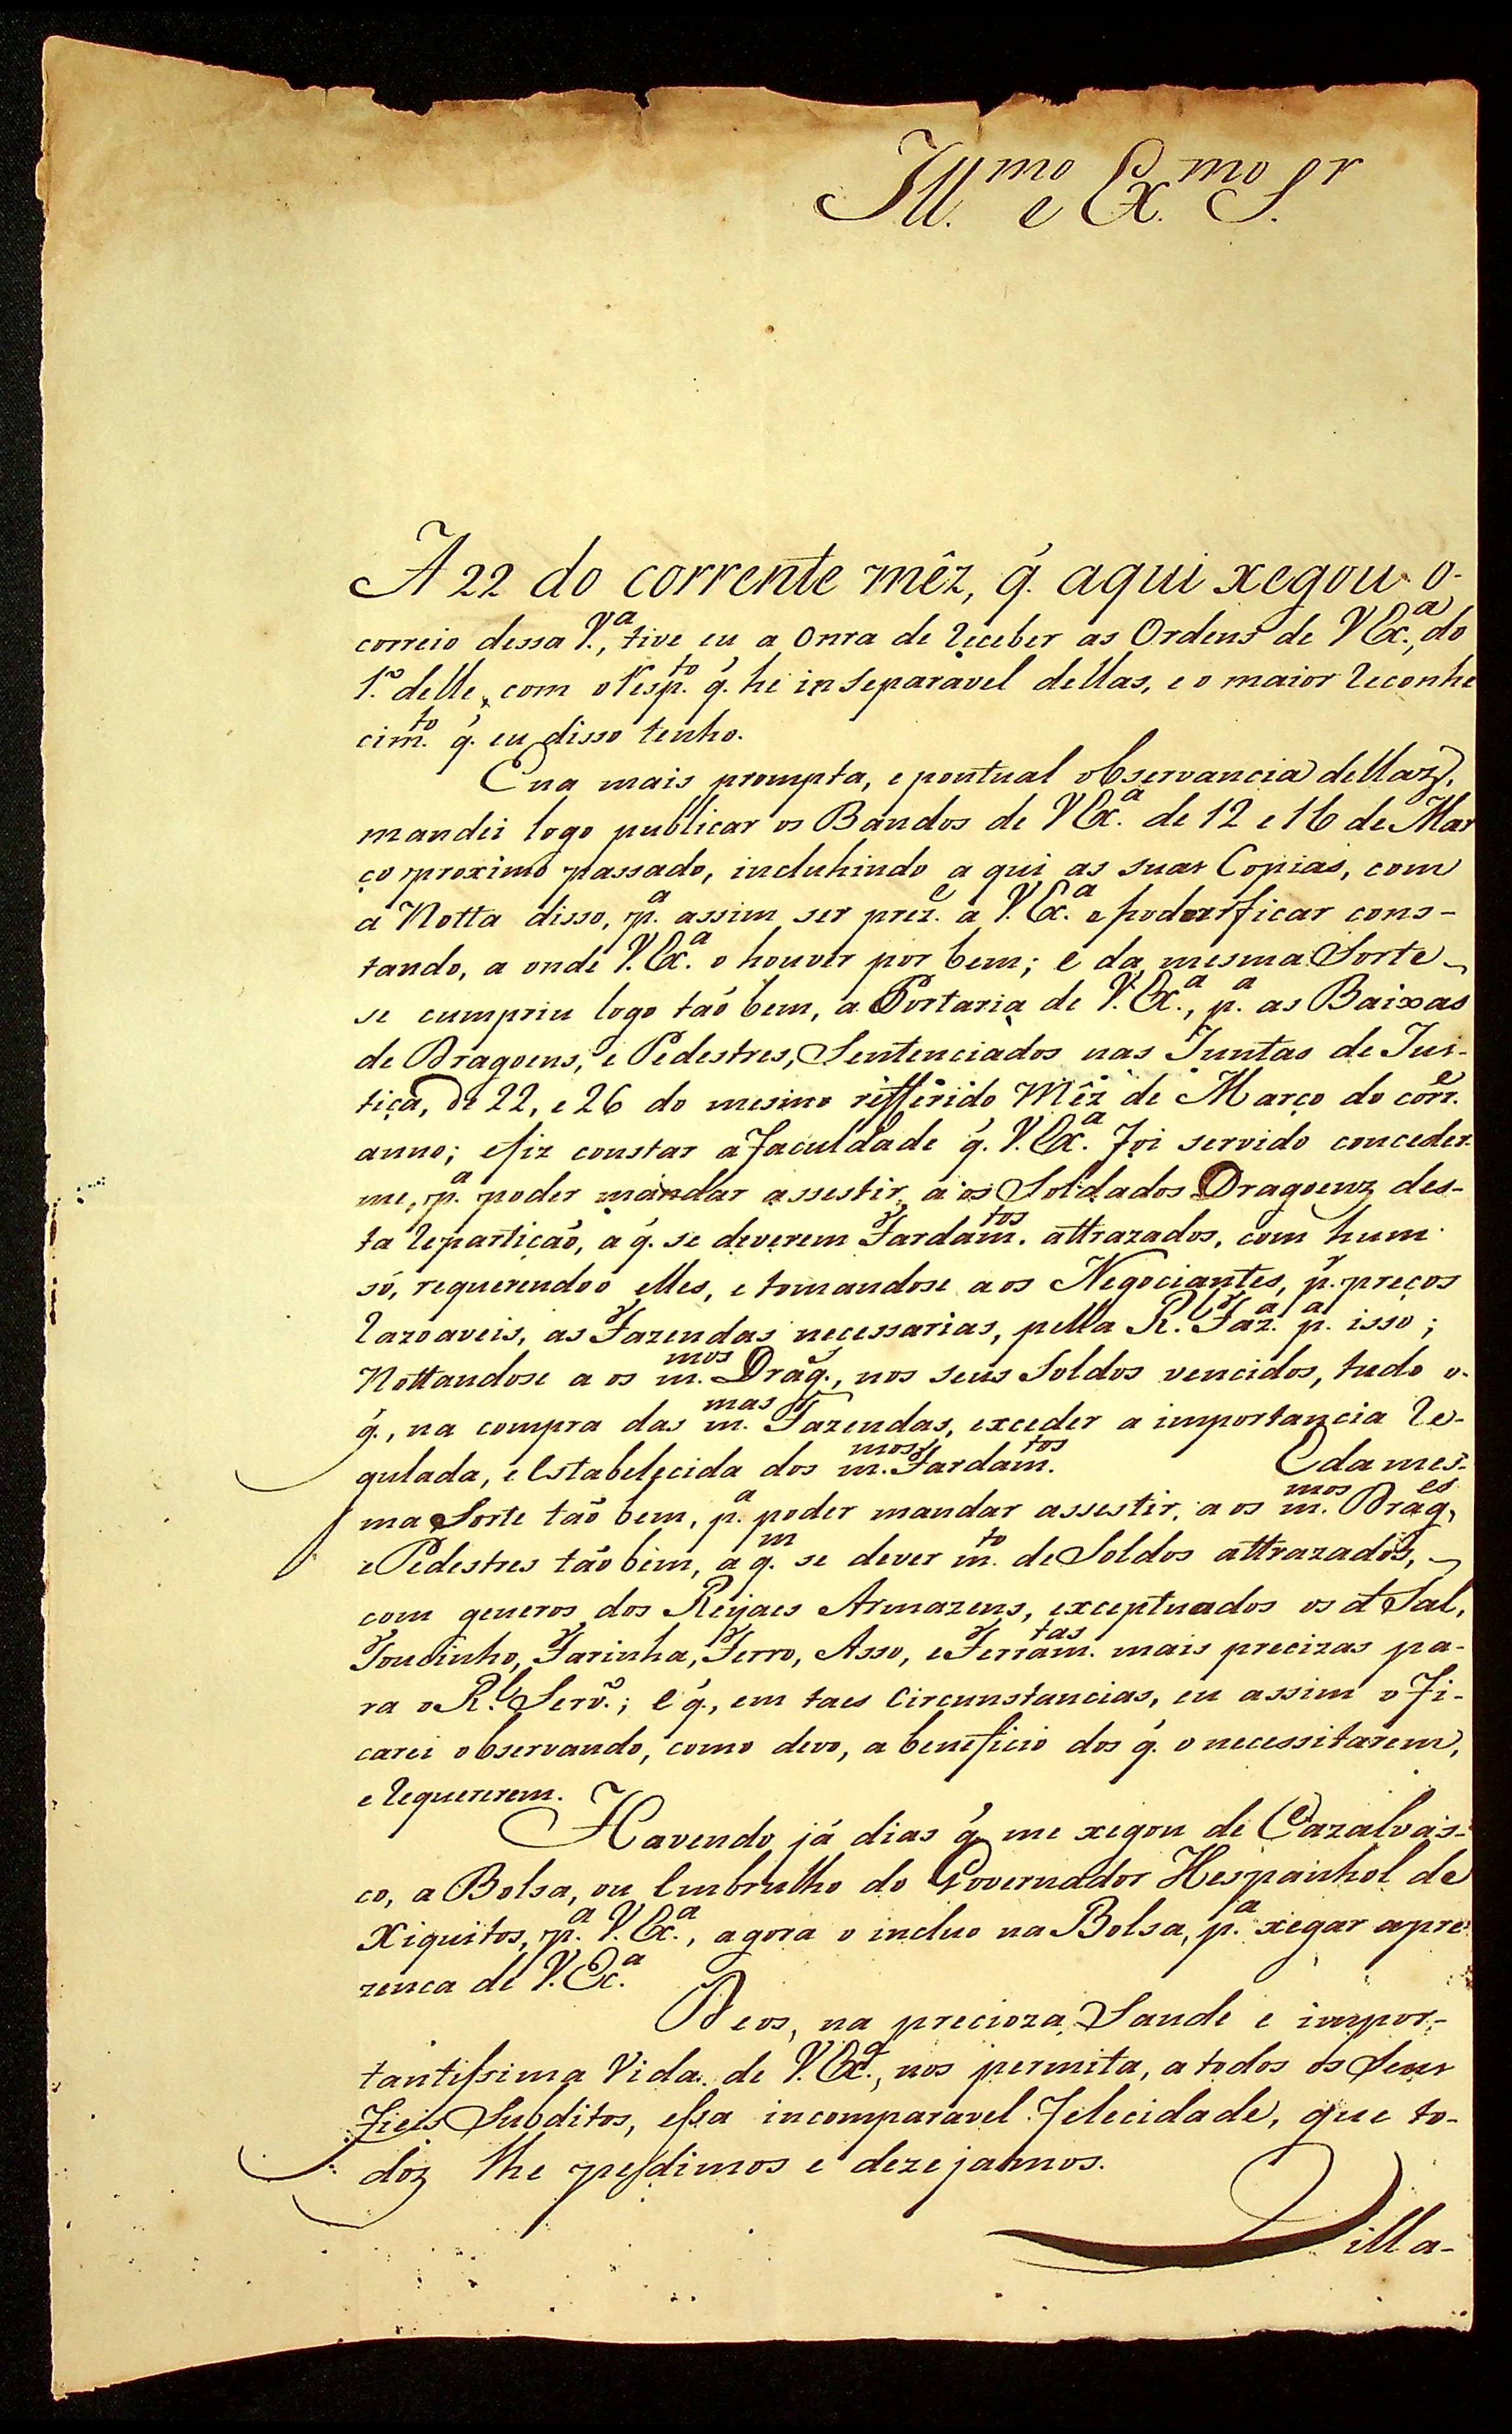 Ill.mo e Ex.mo S.or
A 22 do corrente mêz, q̃. aqui xegou o-
correio dessa V.a, tive eu a Onra de receber as Ordens de VEx.a, do
1.º delle, com o resp.to q̃. he inseparavel dellas, e o maior reconhe
cim.to q̃. eu disso tenho.
E na mais prompta, e pontual observancia dellaz,
mandei logo publicar os Bandos de VEx.a de 12 e 16 de Mar
ço proximo passado, incluhindo a qui as suas Copias, com
a Notta disso, p.a assim ser prez.e a V.Ex.a e poder ficar cons-
tando, a onde V.Ex.a o houver por bem; e da mesma Sorte
se cumpriu logo taõ bem, a Portaria de V.Ex.a, p.a as Baixas
de Dragoens, e Pedestres, Sentenciados nas Juntas de Jus-
tiça, de 22, e 26 do mesmo refferido Mêz de Março do corr.e
anno; e fiz constar a faculdade q̃. V.Ex.a foi servido conceder
me, p.a poder mandar assestir, a os Soldados Dragoenz des-
ta repartiçaõ, a q̃. se deverem Fardam.tos attrazados, com hum
só, requerendo o elles, e tomandose a os Negociantes, p.r preços
razoaveis, as Fazendas necessarias, pella R. Faz.a p.a isso;
Nottandose a os m.mos Drag.s, nos seus Soldos vencidos, tudo o-
q̃., na compra das m.mas Fazendas, exceder a importancia re-
gulada, e estabelecida dos m.mos Fardam.tos E da mes-
ma Sorte taõ bem, p.a poder mandar assestir, a os m.mos Drag.es
e Pedestres taõ bem, a q.m se dever m.to de Soldos attrazados,
com generos dos Reyaes Armazens, exceptuados os d Sal,
Toucinho, Farinha, Ferro, Asso, e Ferram.tas mais precizas pa-
ra o R.l Serv.o; e q̃., em taes Circunstancias, eu assim o fi-
carei observando, como devo, a beneficio dos q̃. o necessitarem,
e requererem.
Havendo já dias q̃ me xegou de Cazalvas-
co, a Bolsa, ou Embrulho do Governador Hespanhol de
Xiquitos, p.a V.Ex.a, agora o incluo na Bolsa, p.a xegar a pre
zenca de V.Ex.a
Deos, na precioza Saude e impor-
tantissima Vida de V.Ex.a, nos permita, a todos os Seus
Fieis Subditos, essa incomparavel felecidade, que to-
doz lhe pedimos e dezejamos.
Villa-